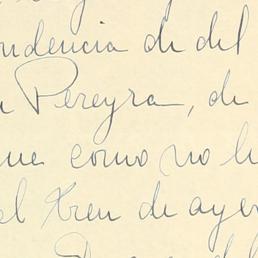 ndencia de del
Pereyra, de
ue como no l
el tren de aye